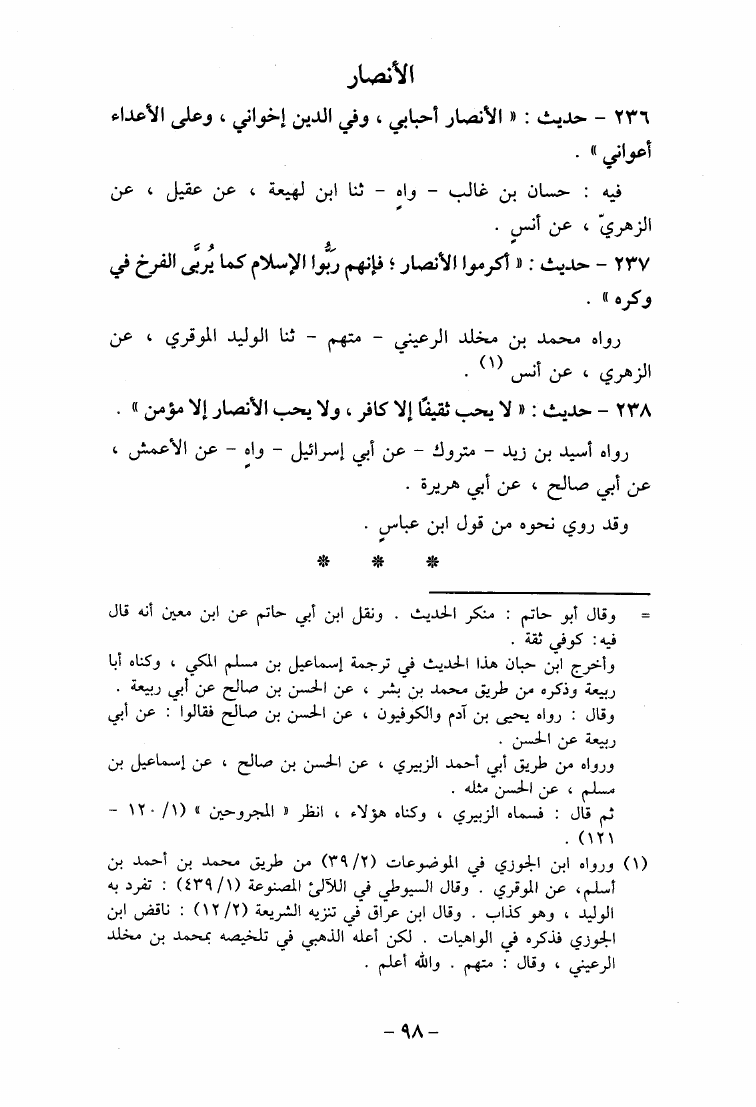 الأنصار
٢٣٦ – حديث : « الأنصار أحبابي ، وفي الدين إخواني ، وعلى الأعداء
أعواني » .
فيه : حسان بن غالب – واهٍ – ثنا ابن لهيعة ، عن عقيل ، عن
الزهريّ ، عن أنسٍ .
٢٣٧ – حديث : « أكرموا الأنصار ؛ فإنهم رَبُّوا الإسلام كما يُربَّى الفرخ في
وكره » .
رواه محمد بن مخلد الرعيني – متهم – ثنا الوليد الموقري ، عن
الزهري ، عن أنس (١) .
٢٣٨ – حديث : « لا يحب ثقيفًا إلا كافر ، ولا يحب الأنصار إلا مؤمن » .
رواه أسيد بن زيد – متروك – عن أبي إسرائيل – واهٍ – عن الأعمش ،
عن أبي صالح ، عن أبي هريرة .
وقد روي نحوه من قول ابن عباسٍ .
* * *
= وقال أبو حاتم : منكر الحديث . ونقل ابن أبي حاتم عن ابن معين أنه قال
فيه : كوفي ثقة .
وأخرج ابن حبان هذا الحديث في ترجمة إسماعيل بن مسلم المكي ، وكناه أبا
ربيعة وذكره من طريق محمد بن بشر ، عن الحسن بن صالح عن أبي ربيعة .
وقال : رواه يحيى بن آدم والكوفيون ، عن الحسن بن صالح فقالوا : عن أبي
ربيعة عن الحسن .
ورواه من طريق أبي أحمد الزبيري ، عن الحسن بن صالح ، عن إسماعيل بن
مسلم ، عن الحسن مثله .
ثم قال : فسماه الزبيري ، وكناه هؤلاء ، انظر « المجروحين » (١/ ١٢٠ –
١٢١) .
(١) ورواه ابن الجوزي في الموضوعات (٢/ ٣٩) من طريق محمد بن أحمد بن
أسلم، عن الموقري . وقال السيوطي في اللآلئ المصنوعة (١/ ٤٣٩) : تفرد به
الوليد ، وهو كذاب . وقال ابن عراق في تنزيه الشريعة (٢/ ١٢) : ناقض ابن
الجوزي فذكره في الواهيات . لكن أعله الذهبي في تلخيصه بمحمد بن مخلد
الرعيني ، وقال : متهم . والله أعلم .
– ٩٨ –